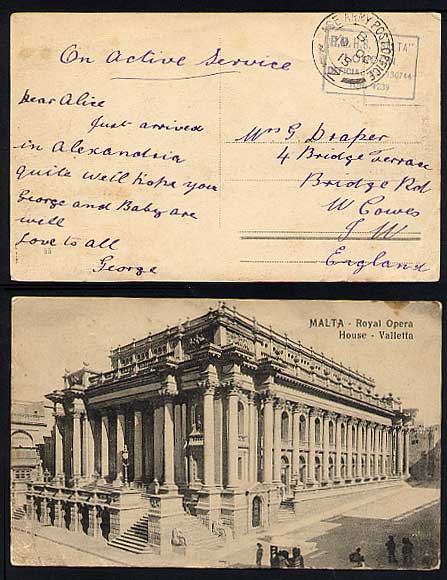 On Active Service
ARMY POST OFFICE
Dear Alice
Just arrived
in Alexandria
quite well hope you
George and Baby are
well
Love to all
George
Mrs G Draper
4 Bridge Terrace
Bridge Rd
W Cowes
I W
England
MALTA - Royal Opera
House - Valletta